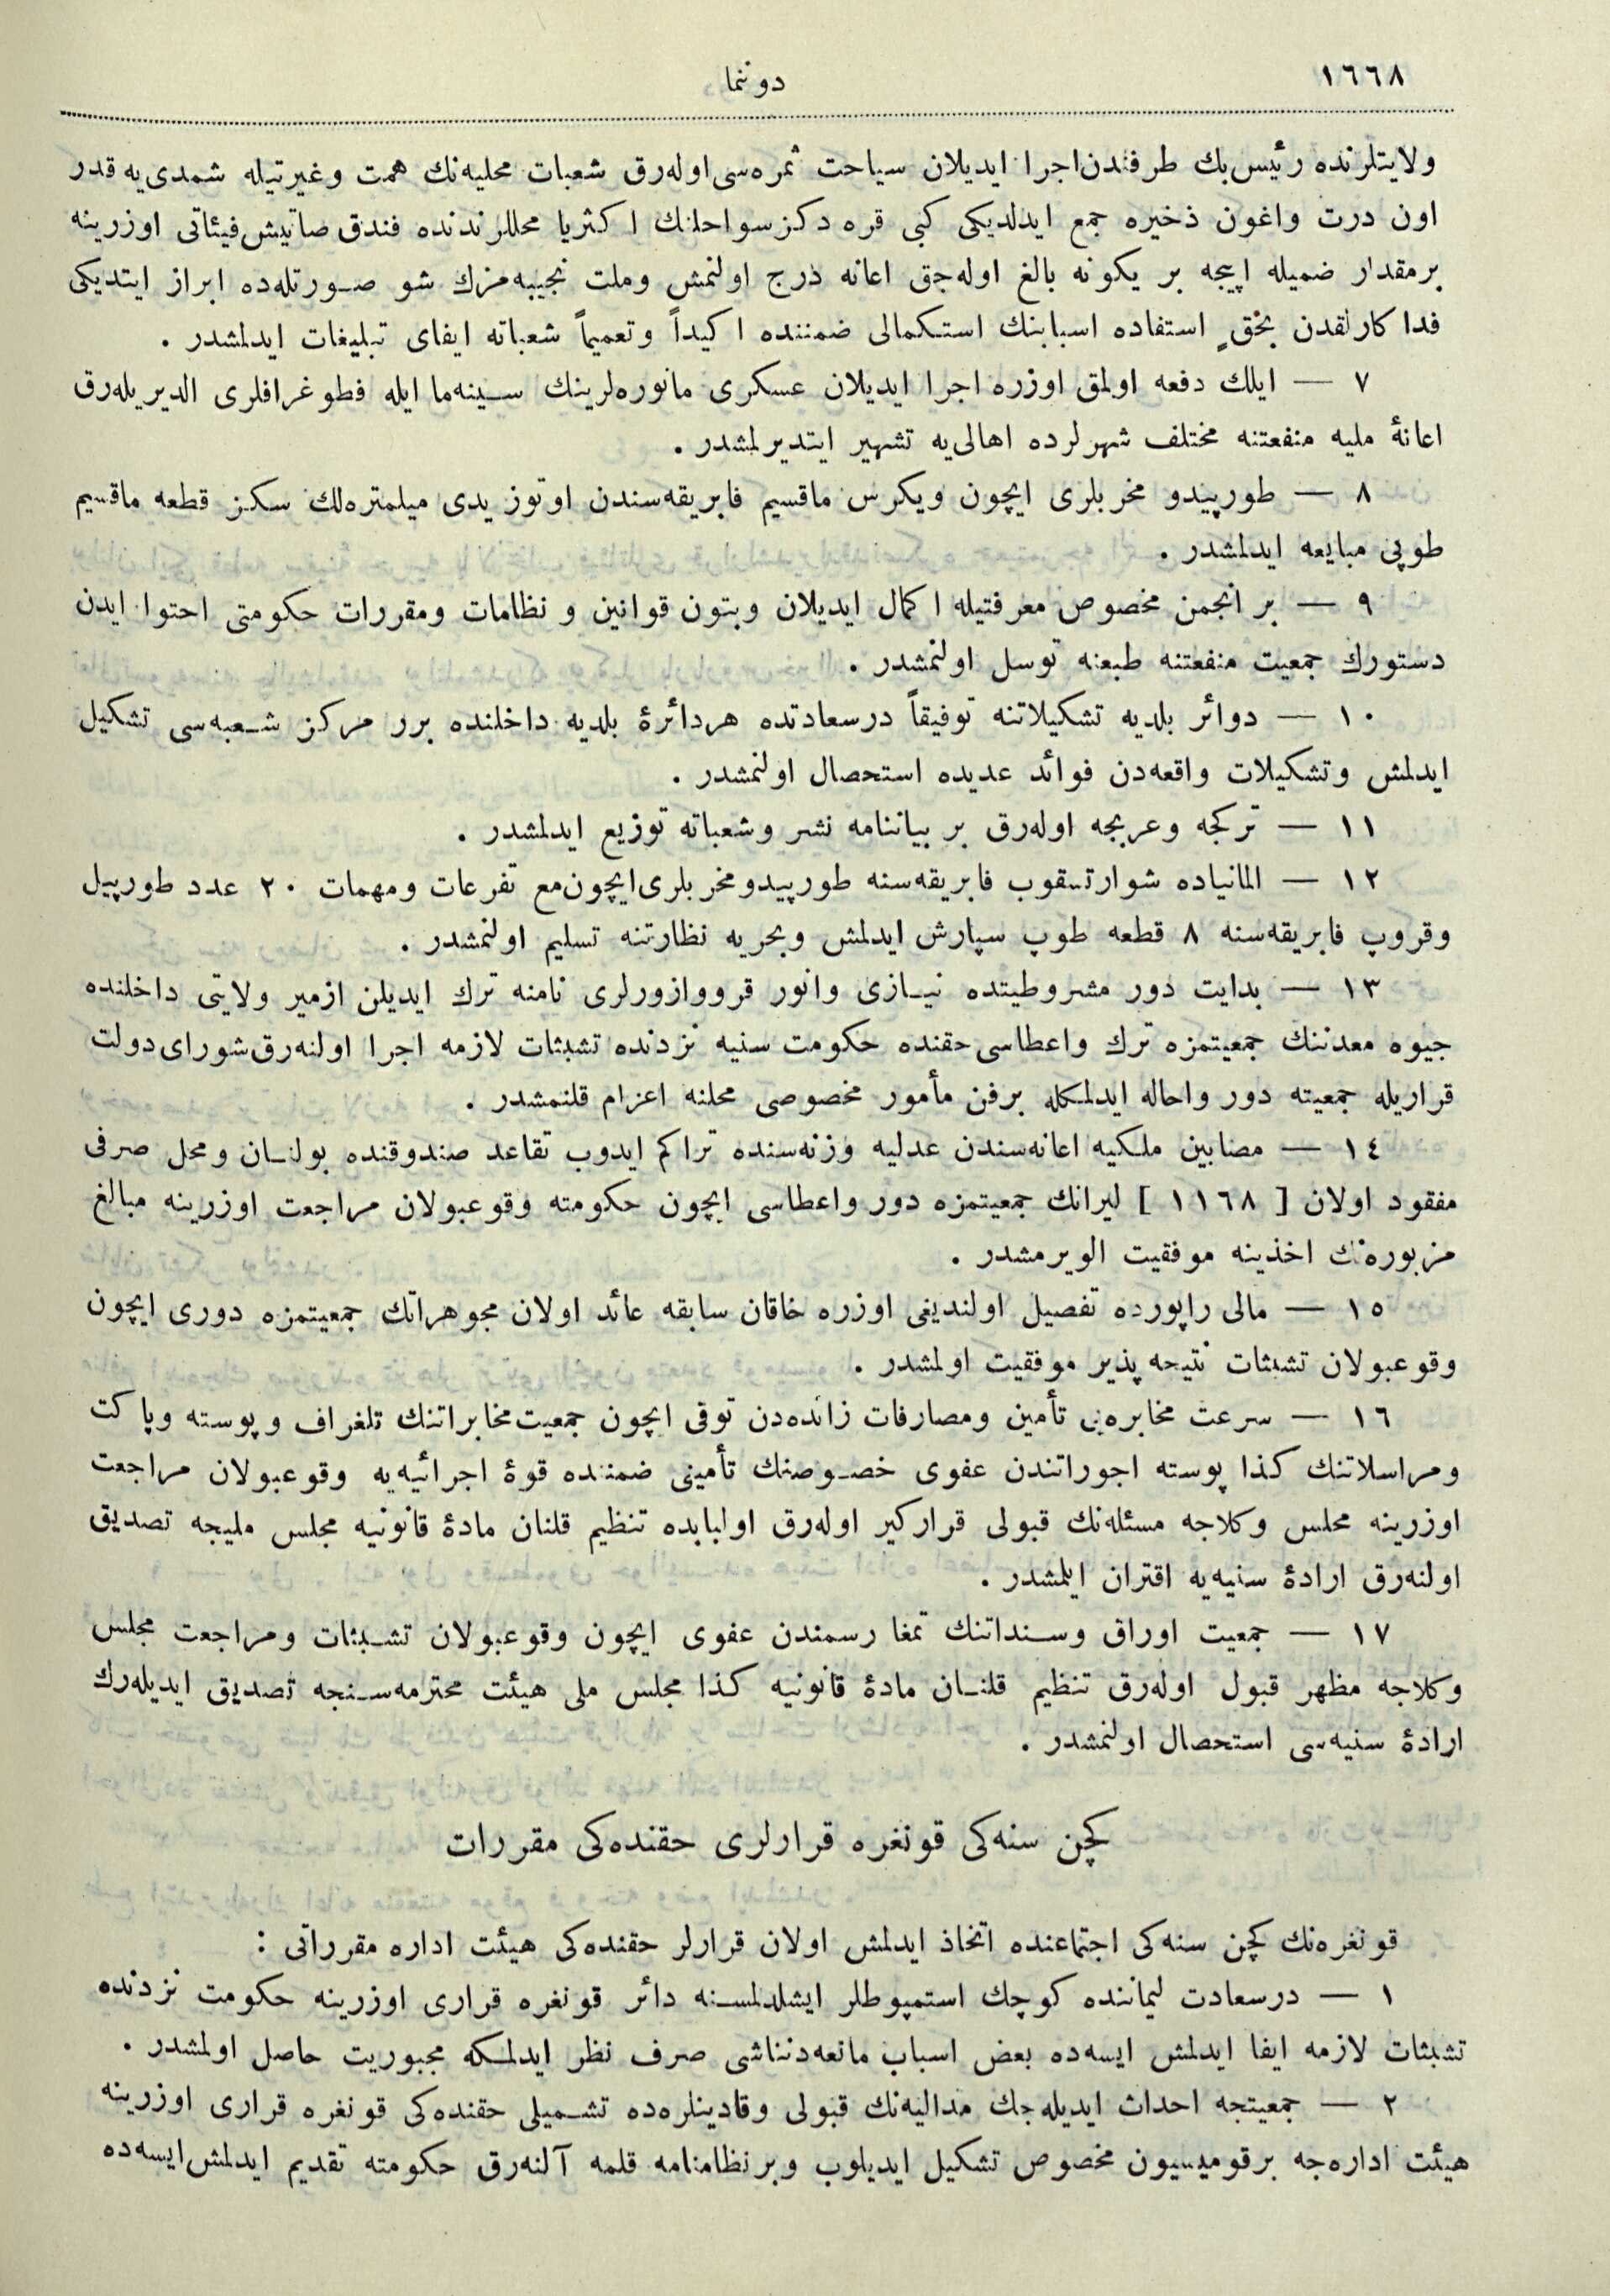 ١٦٦٨
دوننما
ولایتلرنده رئیس بك طرفندن اجرا ایدیلان سیاحت ثمره‌سی اوله‌رق شعبات محلیه‌نك همت وغیرتیله شمدی‌یه قدر
اون درت واغون ذخیره جمع ایدلدیكی كبی قره دكز سواحلنك اكثریا محللرندنده فندق صاتیش فیئاتی اوزرینه
برمقدار ضمیله اپیجه بر یكونه بالغ اوله‌جق اعانه درج اولنمش وملت نجیبه‌مزك شو صورتله‌ده ابراز ایتدیكی
فدا كارلقدن بحقٍ استفاده اسبابنك استكمالی ضمننده اكیداً وتعمیماً شعباته ایفای تبلیغات ایدلمشدر .
٧ — ایلك دفعه اولمق اوزره اجرا ایدیلان عسكری مانوره‌لرینك سینه‌ما ایله فطوغرافلری الدیریله‌رق
اعانهٔ ملیه منفعتنه مختلف شهرلرده اهالی‌یه تشهیر ایتدیرلمشدر .
٨ — طورپیدو مخربلری ایچون ویكرس ماقسیم فابریقه‌سندن اوتوز یدی میلمتره‌لك سكز قطعه ماقسیم
طوپی مبایعه ایدلمشدر .
٩ — بر انجمن مخصوص معرفتیله اكمال ایدیلان وبتون قوانین و نظامات ومقررات حكومتی احتوا ایدن
دستورك جمعیت منفعتنه طبعنه توسل اولنمشدر .
١٠ — دوائر بلدیه تشكیلاتنه توفیقاً درسعادتده هردائرهٔ بلدیه داخلنده برر مركز شعبه‌سی تشكیل
ایدلمش وتشكیلات واقعه‌دن فوائد عدیده استحصال اولنمشدر .
١١ — تركجه وعربجه اوله‌رق بر بیاننامه نشر وشعباته توزیع ایدلمشدر .
١٢ — المانیاده شوارتسقوب فابریقه‌سنه طورپیدو مخربلری ایچون مع تفرعات ومهمات ٢٠ عدد طورپیل
وقروپ فابریقه‌سنه ٨ قطعه طوپ سپارش ایدلمش وبحریه نظارتنه تسلیم اولنمشدر .
١٣ — بدایت دور مشروطیتده نیازی وانور قرووازورلری نامنه ترك ایدیلن ازمیر ولایتی داخلنده
جیوه معدننك جمعیتمزه ترك واعطاسی حقنده حكومت سنیه نزدنده تشبثات لازمه اجرا اولنه‌رق شورای دولت
قراریله جمعیته دور واحاله ایدلمكله برفن مأمور مخصوصی محلنه اعزام قلنمشدر .
١٤ — مصابین ملكیه اعانه‌سندن عدلیه وزنه‌سنده تراكم ایدوب تقاعد صندوقنده بولنان ومحل صرفی
مفقود اولان [ ١١٦٨ ] لیرانك جمعیتمزه دور واعطاسی ایچون حكومته وقوعبولان مراجعت اوزرینه مبالغ
مزبوره‌نك اخذینه موفقیت الویرمشدر .
١٥ — مالی راپورده تفصیل اولندیغی اوزره خاقان سابقه عائد اولان مجوهراتك جمعیتمزه دوری ایچون
وقوعبولان تشبثات نتیجه پذیر موفقیت اولمشدر .
١٦ — سرعت مخابره‌یی تأمین ومصارفات زائده‌دن توقی ایچون جمعیت مخابراتنك تلغراف وپوسته وپاكت
ومراسلاتنك كذا پوسته اجوراتندن عفوی خصوصنك تأمینی ضمننده قوهٔ اجرائیه‌یه وقوعبولان مراجعت
اوزرینه مجلس وكلاجه مسئله‌نك قبولی قراركیر اوله‌رق اولبابده تنظیم قلنان مادهٔ قانونیه مجلس ملیجه تصدیق
اولنه‌رق ارادهٔ سنیه‌یه اقتران ایلمشدر .
١٧ — جمعیت اوراق وسنداتنك تمغا رسمندن عفوی ایچون وقوعبولان تشبثات ومراجعت مجلس
وكلاجه مظهر قبول اوله‌رق تنظیم قلنان مادهٔ قانونیه كذا مجلس ملی هیئت محترمه‌سنجه تصدیق ایدیله‌رك
ارادهٔ سنیه‌سی استحصال اولنمشدر .
كچن سنه‌كی قونغره قرارلری حقنده‌كی مقررات
قونغره‌نك كچن سنه‌كی اجتماعنده اتخاذ ایدلمش اولان قرارلر حقنده‌كی هیئت اداره مقرراتی :
١ — درسعادت لیماننده كوچك استمپوطلر ایشلدلمسنه دائر قونغره قراری اوزرینه حكومت نزدنده
تشبثات لازمه ایفا ایدلمش ایسه‌ده بعض اسباب مانعه‌دنناشی صرف نظر ایدلمكه مجبوریت حاصل اولمشدر .
٢ — جمعیتجه احداث ایدیله‌جك مدالیه‌نك قبولی وقادینلره‌ده تشمیلی حقنده‌كی قونغره قراری اوزرینه
هیئت اداره‌جه برقومیسیون مخصوص تشكیل ایدیلوب وبرنظامنامه قلمه آلنه‌رق حكومته تقدیم ایدلمش ایسه‌ده